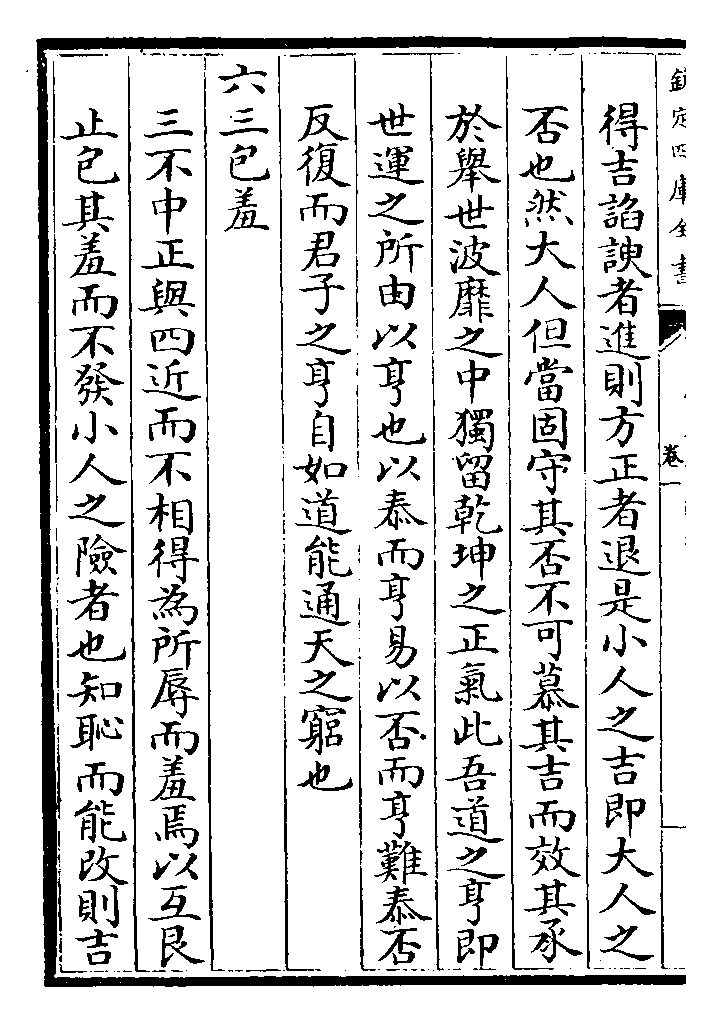 欽定四庫全書
卷一
得吉諂諛者進則方正者退是小人之吉即大人之
否也然大人但當固守其否不可慕其吉而效其承
於舉世波靡之中獨留乾坤之正氣此吾道之亨即
世運之所由以亨也以泰而亨易以否而亨難泰否
反復而君子之亨自如道能通天之窮也
六三包羞
三不中正與四近而不相得為所辱而羞焉以互艮
止包其羞而不發小人之險者也知恥而能改則吉